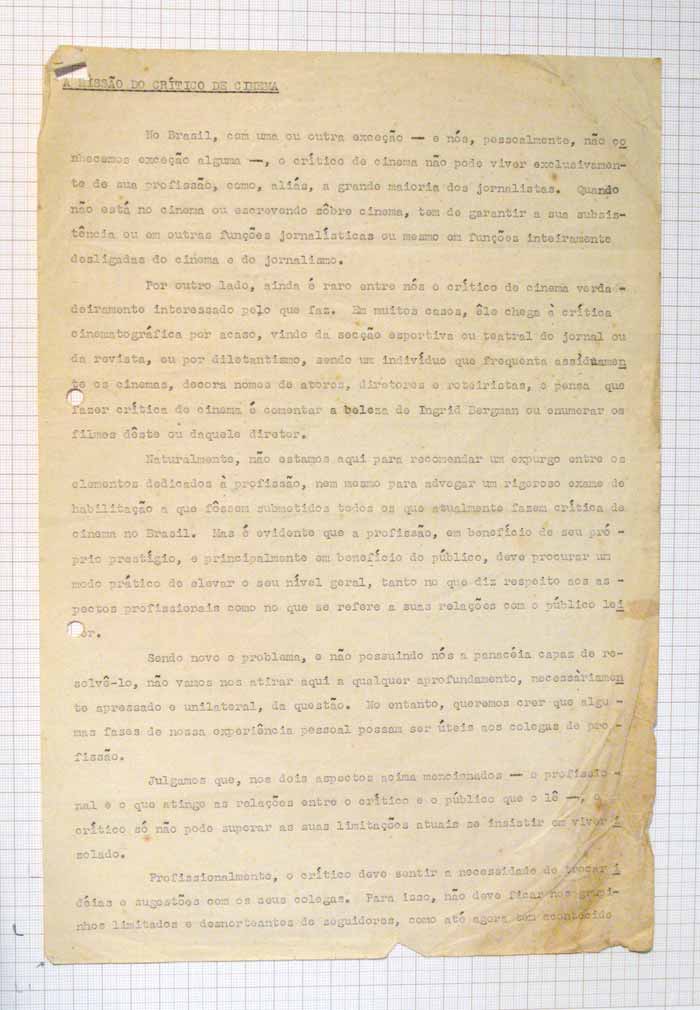 A MISSÃO DO CRÍTICO DE CINEMA
No Brasil, com uma ou outra exceção — e nós, pessoalmente, não co
nhecemos exceção alguma —, o crítico de cinema não pode viver exclusivamen-
te de sua profissão, como, aliás, a grande maioria dos jornalistas. Quando
não está no cinema ou escrevendo sôbre cinema, tem de garantir a sua subsis-
tência ou em outras funções jornalísticas ou mesmo em funções inteiramente
desligadas do cinema e do jornalismo.
Por outro lado, ainda é raro entre nós o crítico de cinema verda -
deiramente interessado pelo que faz. Em muitos casos, êle chega à crítica
cinematográfica por acaso, vindo da secção esportiva ou teatral do jornal ou
da revista, ou por diletantismo, sendo um indivíduo que frequenta assíduamen
te os cinemas, decora nomes de atores, diretores e roteiristas, e pensa que
fazer crítica de cinema é comentar a beleza de Ingrid Bergman ou enumerar os
filmes dêste ou daquele diretor.
Naturalmente, não estamos aqui para recomendar um expurgo entre os
elementos dedicados à profissão, nem mesmo para advogar um rigoroso exame de
habilitação a que fôssem submetidos todos os que atualmente fazem crítica de
cinema no Brasil. Mas é evidente que a profissão, em benefício de seu pró -
prio prestígio, e principalmente em benefício do público, deve procurar um
modo prático de elevar o seu nível geral, tanto no que diz respeito aos as -
pectos profissionais como no que se refere a suas relações com o público lei
tor.
Sendo novo o problema, e não possuindo nós a panacéia capaz de re-
solvê-lo, não vamos nos atirar aqui a qualquer aprofundamento, necessàriamen
te apressado e unilateral, da questão. No entanto, queremos crer que algu -
mas fases de nossa experiência pessoal possam ser úteis aos colegas de pro -
fissão.
Julgamos que, nos dois aspectos acima mencionados — o profissio -
nal e o que atinge as relações entre o crítico e o público que o lê —, o
crítico só não pode superar as suas limitações atuais se insistir em viver i
solado.
Profissionalmente, o crítico deve sentir a necessidade de trocar i
déias e sugestões com os seus colegas. Para isso, não deve ficar nos grupi-
nhos limitados e desnorteantes de seguidores, como até agora tem acontecido